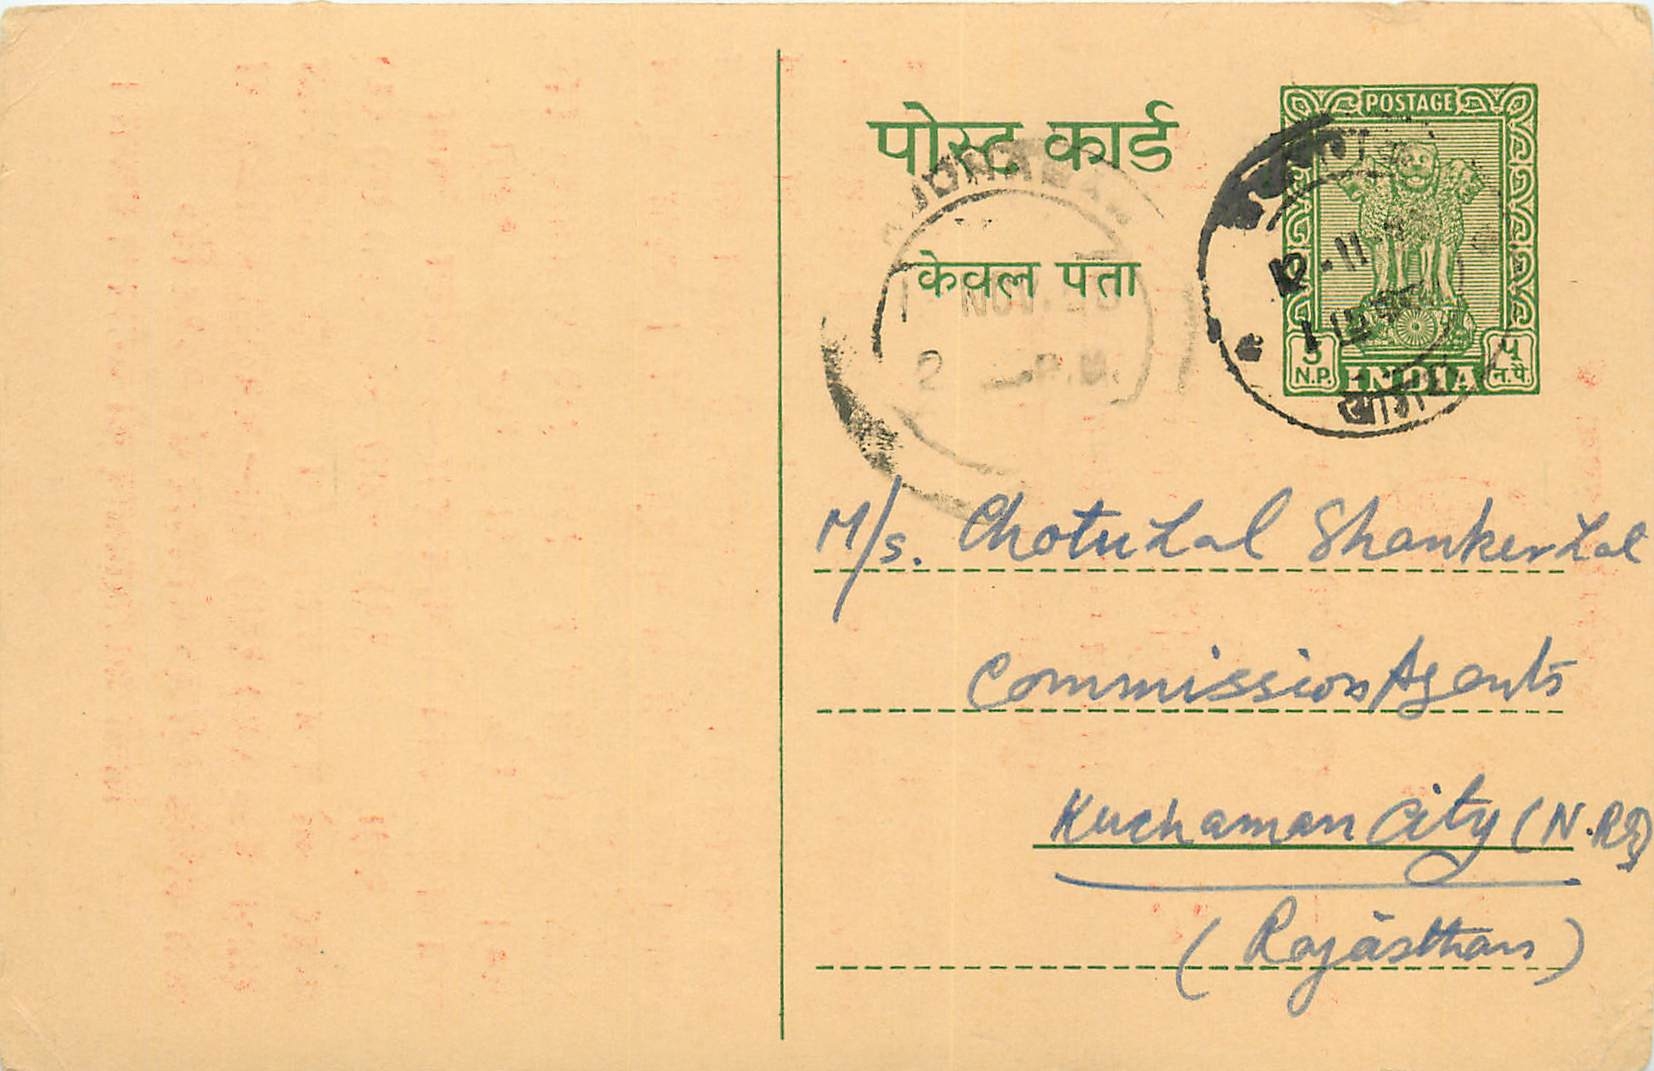 पोस्ट कार्ड
केवल पता
POSTAGE
5 N.P.
INDIA
५ न.पै.
NOV
2 P.M.
12-11
M/s. Chotu Lal Shanker Lal
Commission Agents
Kuchaman City (N.Rly)
(Rajasthan)